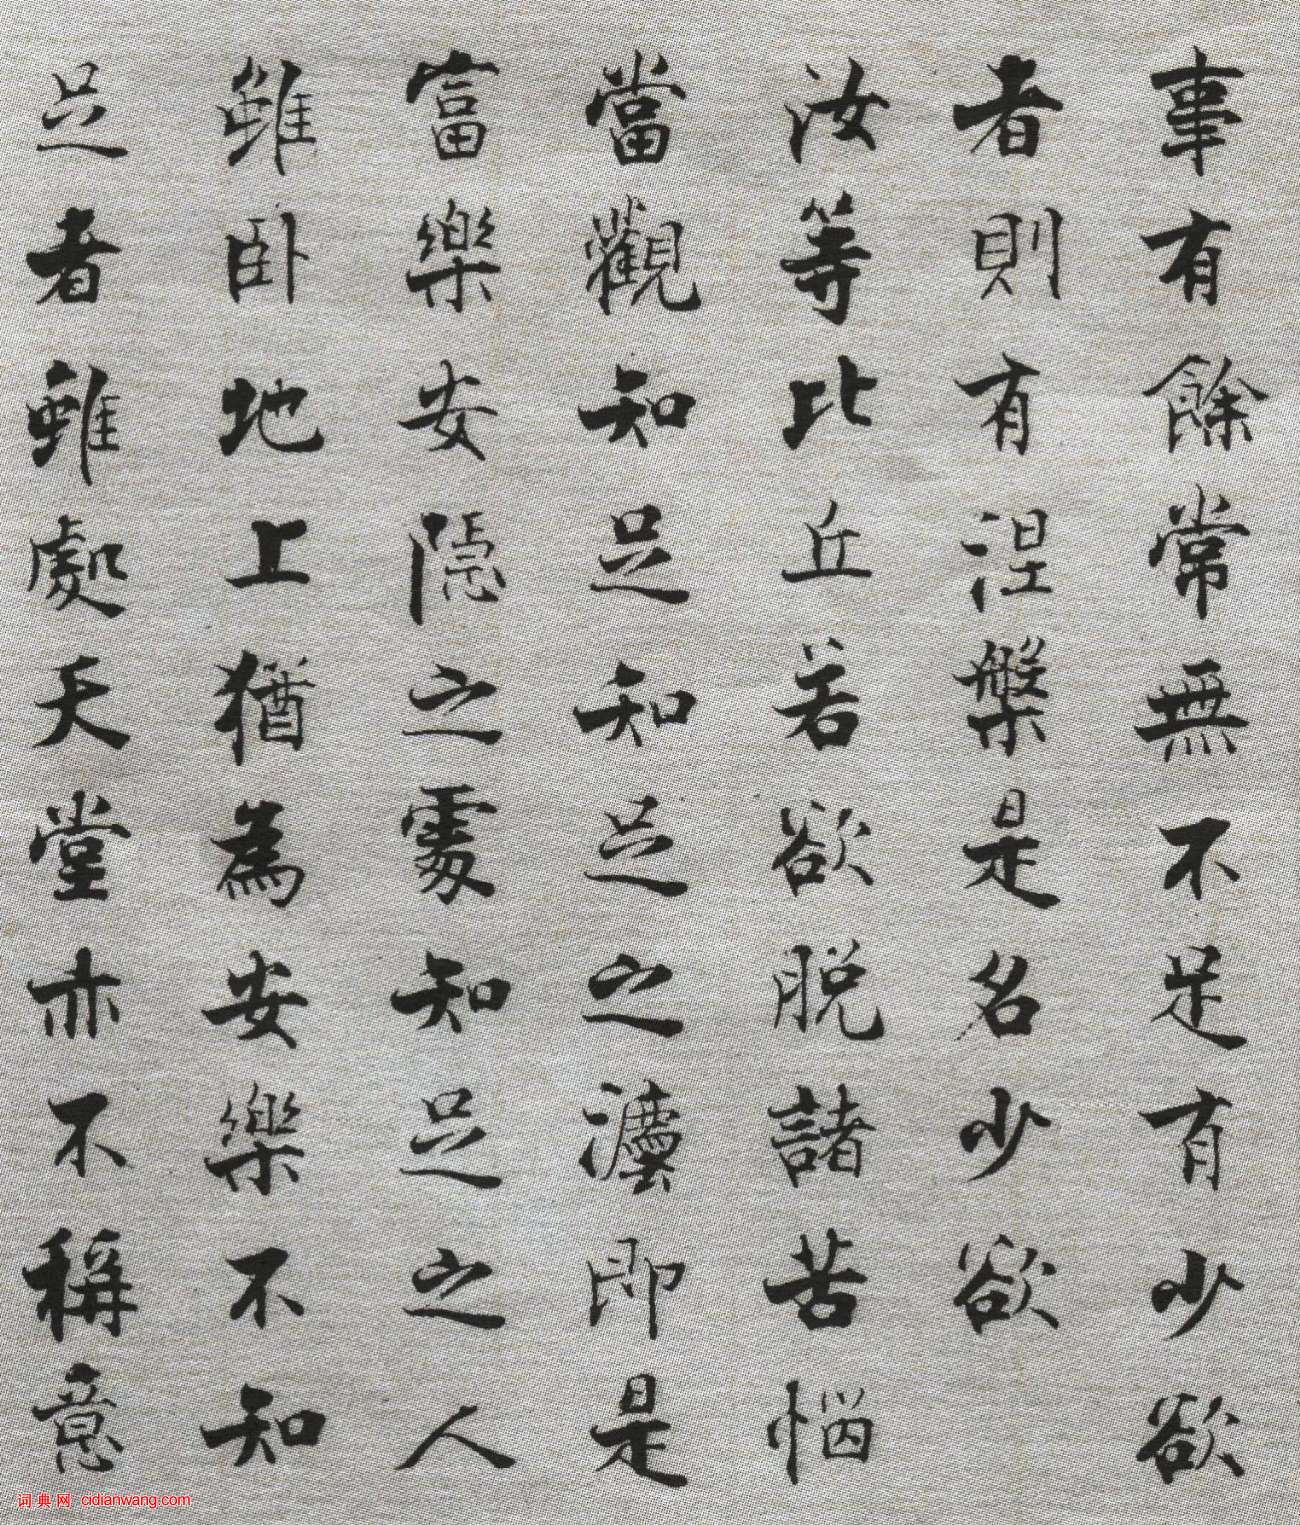 事有餘常無不足有少欲
者則有涅槃是名少欲
汝等比丘若欲脱諸苦惱
當觀知足知足之法即是
富樂安隱之處知足之人
雖卧地上猶為安樂不知
足者雖處天堂亦不稱意
词典网 cidianwang.com